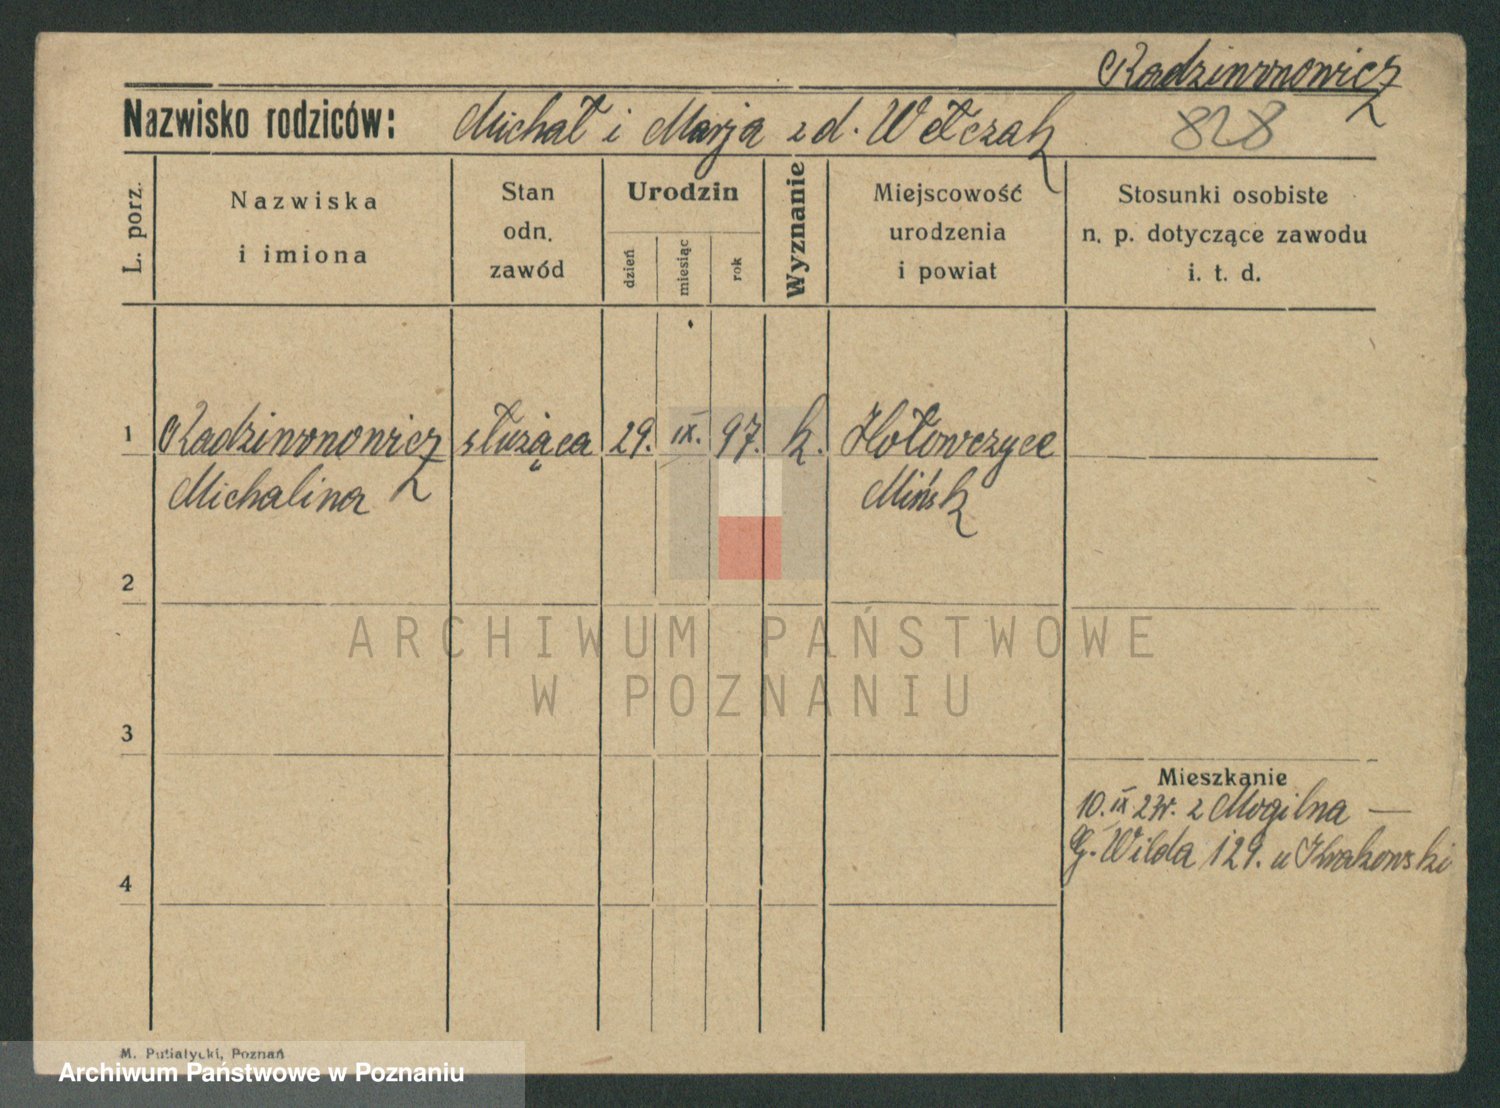 Radziwonowicz
Nazwisko rodziców: Michał i Marja z d. Wełczak 828
L. porz.
Nazwiska
i imiona
Stan
odn.
zawód
Urodzin
dzień
miesiąc
rok
Wyznanie
Miejscowość
urodzenia
i powiat
Stosunki osobiste
n. p. dotyczące zawodu
i. t. d.
1 Radziwonowicz służąca 29. IX. 97. k. Hołowczyce
Michalina Mińsk
2
ARCHIWUM PAŃSTWOWE
W POZNANIU
3
Mieszkanie
10. IX 23r. z Mogilna —
G. Wilda 129. u Krakowski
4
M. Putiatycki, Poznań
Archiwum Państwowe w Poznaniu